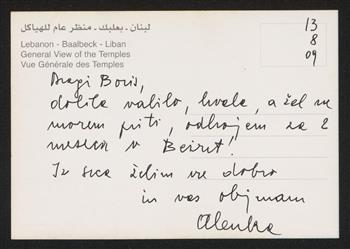 لبنان - بعلبك - منظر عام للهياكل
Lebanon - Baalbeck - Liban
General View of the Temples
Vue Générale des Temples
13
8
09
Dragi Boris,
dobila vabilo, hvala, a žal ne
morem priti, odhajam za 2
meseca v Beirut!
Iz srca želim vse dobro
in vas objmam
Alenka